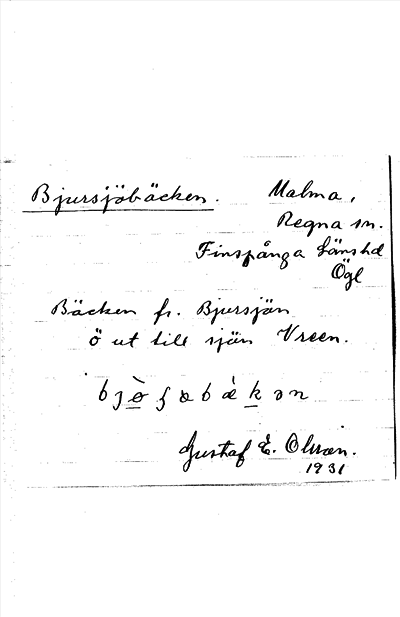 Bjursjöbäcken. Malma,
Regna sn.
Finspånga länshd
Ögl
Bäcken fr. Bjursjön
ö ut till sjön Vreen.
Gustaf E. Olsson.
1931